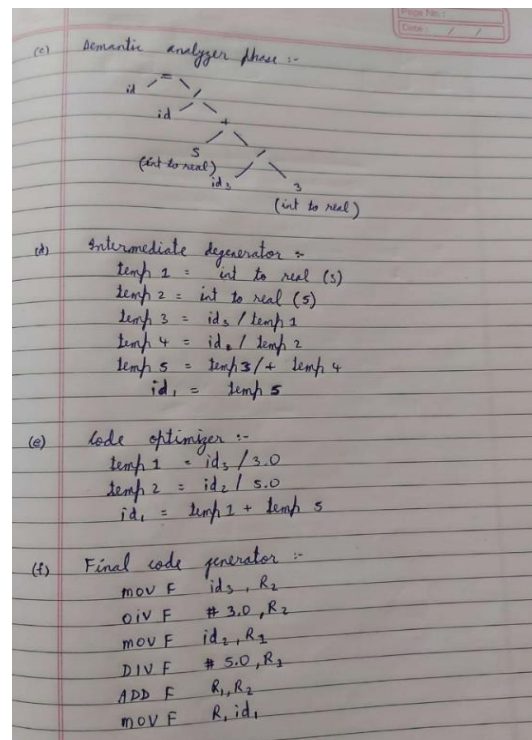 Page No.:
Date: / /
(c) Semantic analyzer phase :-
=
id /
id +
5 /
(int to real) id₃ 3
(int to real)
(d) Intermediate degenerator :-
temp 1 = int to real (3)
temp 2 = int to real (5)
temp 3 = id₃ / temp 1
temp 4 = id₂ / temp 2
temp 5 = temp 3/+ temp 4
id₁ = temp 5
(e) Code optimizer :-
temp 1 = id₃ / 3.0
temp 2 = id₂ / 5.0
id₁ = temp 1 + temp 5
(f) Final code generator :-
MOV F id₃, R₂
DIV F # 3.0, R₂
MOV F id₂, R₁
DIV F # 5.0, R₁
ADD F R₁, R₂
MOV F R, id₁